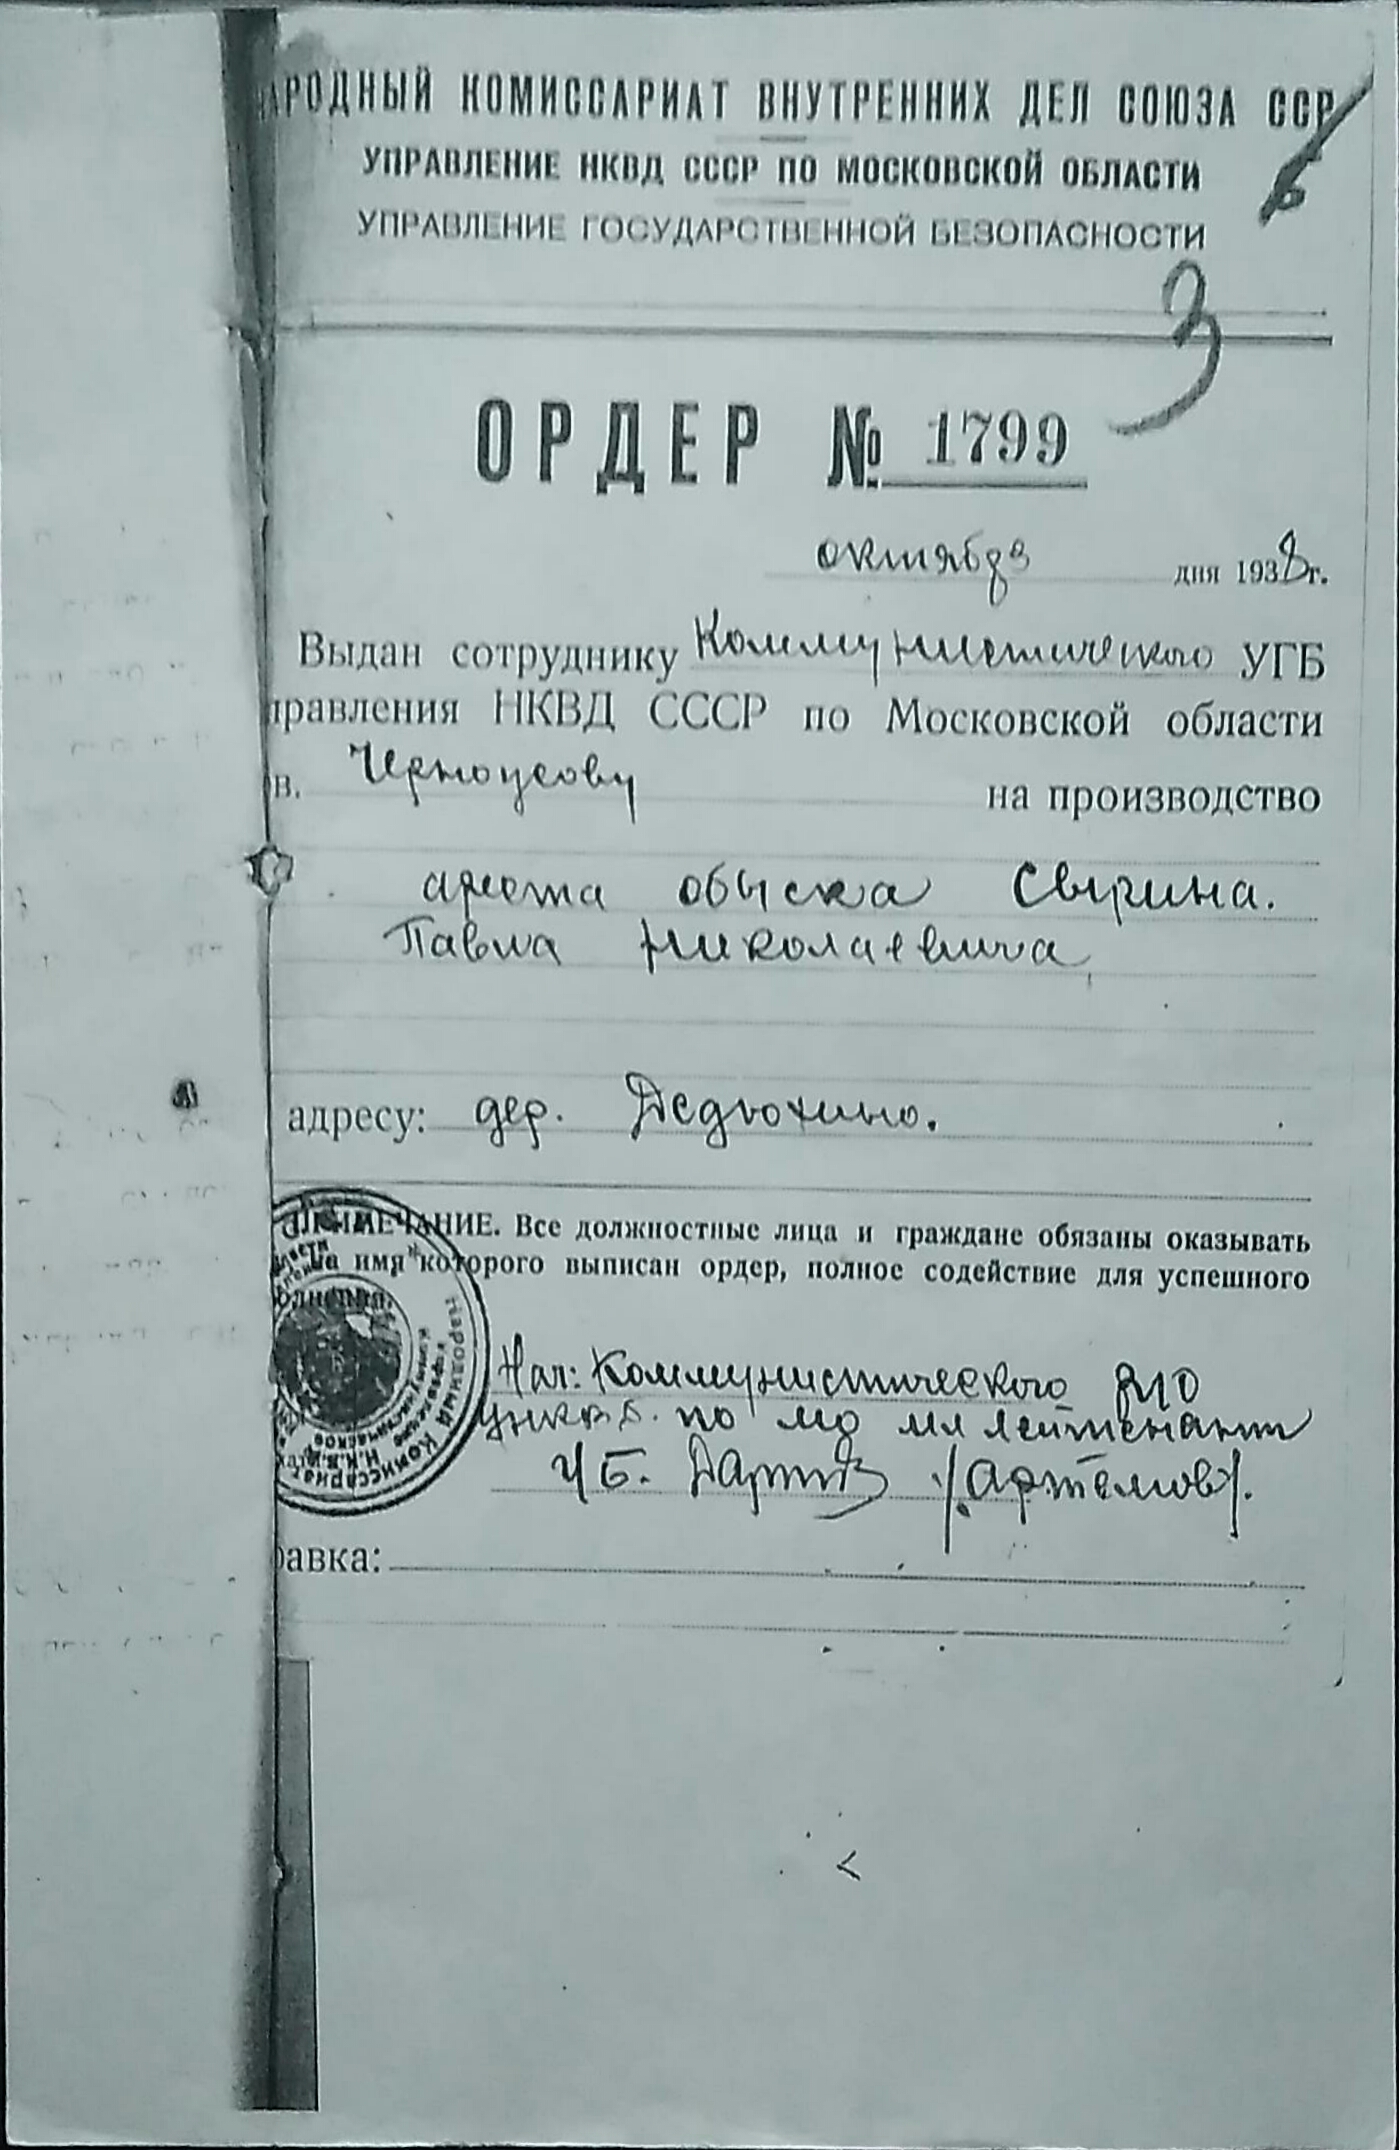 АРОДНЫЙ КОМИССАРИАТ ВНУТРЕННИХ ДЕЛ СОЮЗА ССР
УПРАВЛЕНИЕ НКВД СССР ПО МОСКОВСКОЙ ОБЛАСТИ
УПРАВЛЕНИЕ ГОСУДАРСТВЕННОЙ БЕЗОПАСНОСТИ
3
ОРДЕР № 1799
октября дня 1938 г.
Выдан сотруднику Коммунистического УГБ
правления НКВД СССР по Московской области
в. Черноусову на производство
ареста обыска Свирина.
Павла Николаевича
адресу: дер. Дедюхино.
ПРИМЕЧАНИЕ. Все должностные лица и граждане обязаны оказывать
на имя которого выписан ордер, полное содействие для успешного
Нач: Коммунистического РИО
УНКВД. по МО мл лейтенант
ГБ. /Артёмов/.
равка: